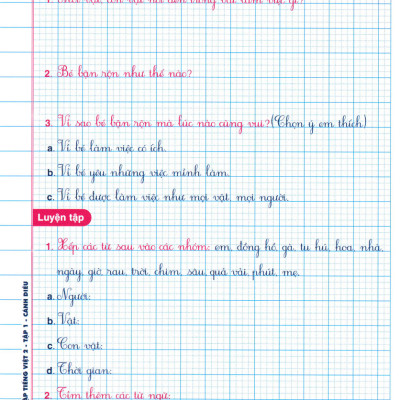 2. Bé bận rộn như thế nào?
3. Vì sao bé bận rộn mà lúc nào cũng vui? (Chọn ý em thích)
a. Vì bé làm việc có ích.
b. Vì bé yêu những việc mình làm.
c. Vì bé được làm việc như mọi vật, mọi người.
Luyện tập
1. Xếp các từ sau vào các nhóm: em, đồng hồ, gà, tu hú, hoa, nhà,
ngày, giờ, rau, trời, chim, sâu, quả vải, phút, mẹ.
a. Người:
b. Vật:
c. Con vật:
d. Thời gian:
2. Tìm thêm các từ ngữ:
TIẾNG VIỆT 2 - TẬP 1 - CÁNH DIỀU